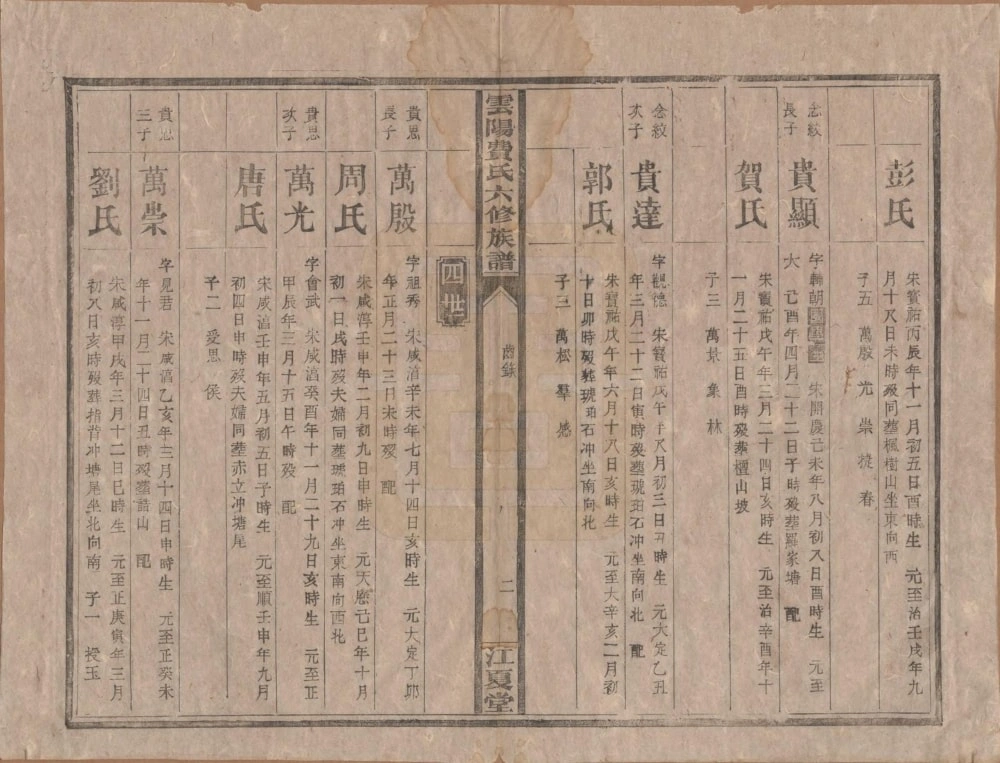 彭氏
宋寶祐丙辰年十一月初五日酉時生 元至治壬戌年九
月十八日未時歿同塟楓樹山坐東向西
子五 萬殷 光 崇 春
念紋
長子
貴顯
字 朝 宋開慶己未年八月初八日酉時生 元至
大己酉年四月二十二日子時歿塟羅家塘 配
賀氏
宋寶祐戊午年三月二十四日亥時生 元至治辛酉年十
一月二十五日酉時歿塟檀山坡
子三 萬景 集 林
念紋
次子
貴達
字觀德 宋寶祐戊午年八月初三日丑時生 元大定乙丑
年三月二十二日寅時歿塟琥珀石冲坐南向北 配
郭氏
宋寶祐戊午年六月十八日亥時生 元至大辛亥二月初
十日卯時歿塟琥珀石冲坐南向北
子三 萬松 羣
雲陽費氏六修族譜
齒錄
二
江夏堂
四世
貴思
長子
萬殷
字祖秀 宋咸淳辛未年七月十四日亥時生 元大定丁卯
年正月二十三日未時歿 配
周氏
宋咸淳壬申年二月初九日申時生 元天曆己巳年十月
初一日戌時歿夫婦同塟琥珀石冲坐東南向西北
貴思
次子
萬光
字會武 宋咸淳癸酉年十一月二十九日亥時生 元至正
甲辰年三月十五日午時歿 配
唐氏
宋咸淳壬申年五月初五日子時生 元至順壬申年九月
初四日申時歿夫婦同塟赤立冲塘尾
子二 愛思 侯
貴思
三子
萬崇
字見君 宋咸淳乙亥年三月十四日申時生 元至正癸未
年十一月二十四日丑時歿塟 山 配
劉氏
宋咸淳甲戌年三月十二日巳時生 元至正庚寅年三月
初八日亥時歿塟楷背冲塘尾坐北向南 子一 授玉